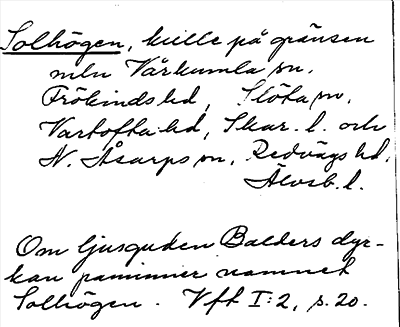 Solhögen, kulle på gränsen
mln Vårkumla sn.
Frökinds hd, Slöta sn.
Vartofta hd, Skar. l. och
N. Åsarps sn, Redvägs hd.
Älvsb. l.
Om ljusguden Balders dyr-
kan påminner namnet
Solhögen. Vft I:2, s. 20.